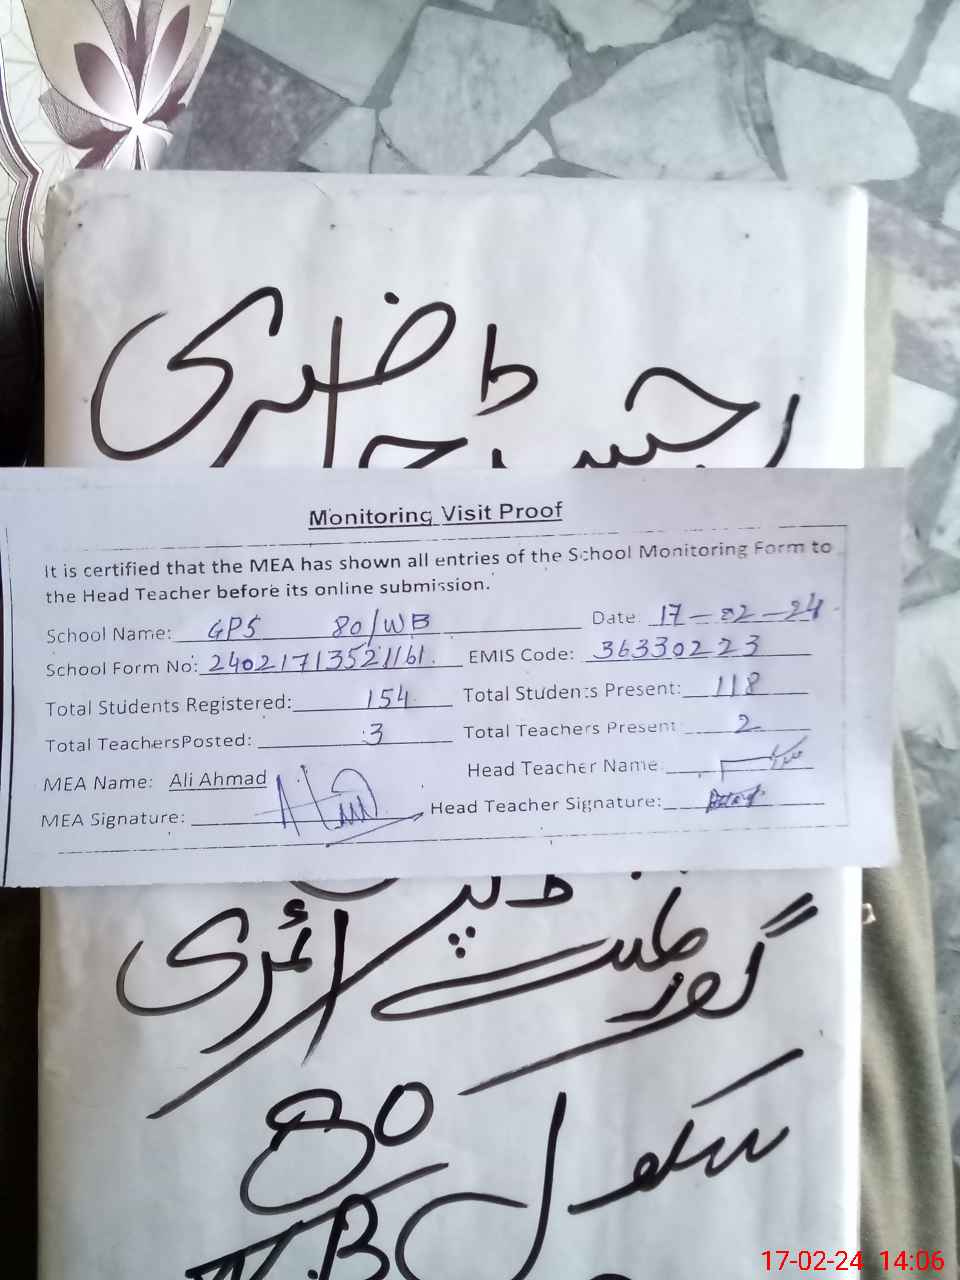 رجسٹر حاضری
Monitoring Visit Proof
It is certified that the MEA has shown all entries of the School Monitoring Form to
the Head Teacher before its online submission.
School Name: GPS 80/WB Date: 17-02-24
School Form No: 24021713521161. EMIS Code: 36330223
Total Students Registered: 154 Total Students Present: 118
Total Teachers Posted: 3 Total Teachers Present: 2
MEA Name: Ali Ahmad Head Teacher Name
MEA Signature: Head Teacher Signature:
گورنمنٹ پرائمری
سکول 80
W.B
17-02-24 14:06